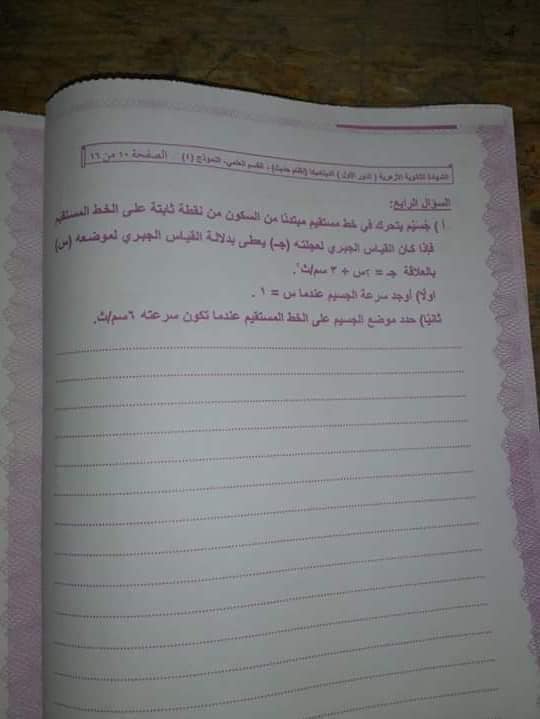 الشهادة الثانوية الأزهرية ( الدور الأول ) الديناميكا (نظام حديث) - القسم العلمي- النموذج (٤) الصفحة ١٠ من ١٦
السؤال الرابع:
أ ) جُسَيْم يتحرك في خط مستقيم مبتدئا من السكون من نقطة ثابتة على الخط المستقيم
فإذا كان القياس الجبري لعجلته (جـ) يعطى بدلالة القياس الجبري لموضعه (س)
بالعلاقة جـ = ٢س + ٣ سم/ث٢.
اولًا) أوجد سرعة الجسيم عندما س = ١ .
ثانيًا) حدد موضع الجسيم على الخط المستقيم عندما تكون سرعته ٦سم/ث.